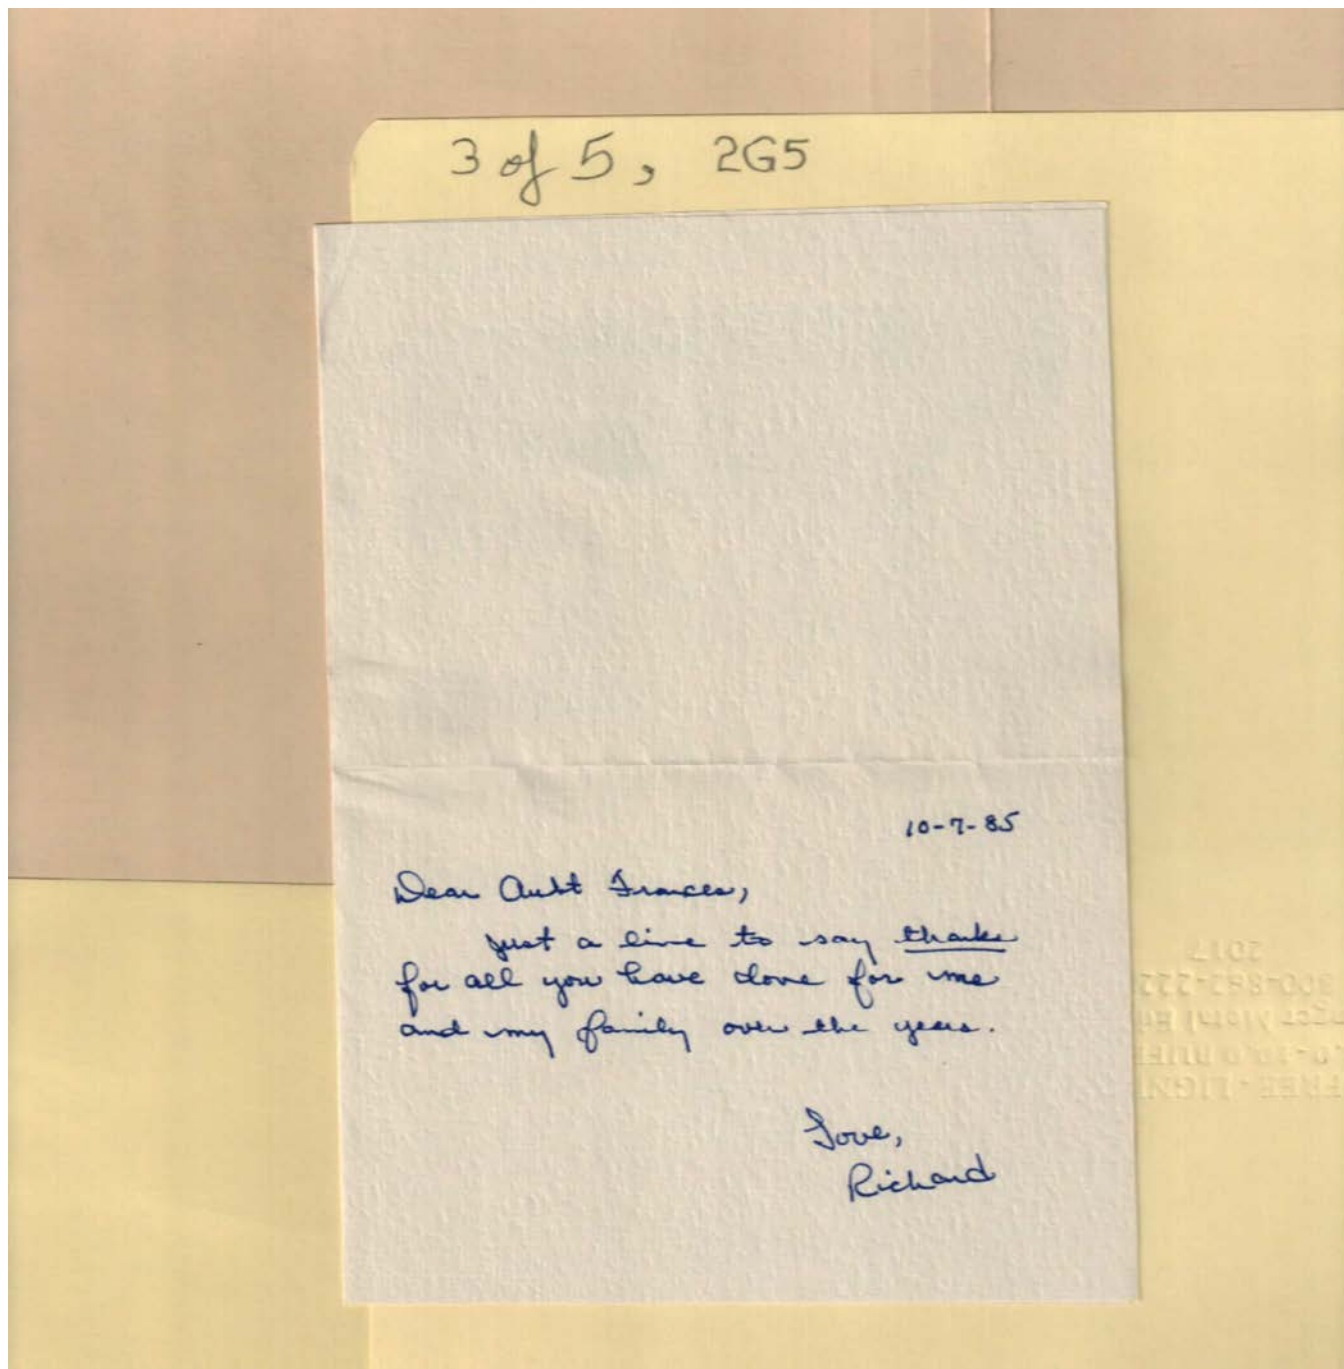 3 of 5, 2G5
10-7-85
Dear Aunt Frances,
Just a line to say thanks
for all you have done for me
and my family over the years.
Love,
Richard
2017